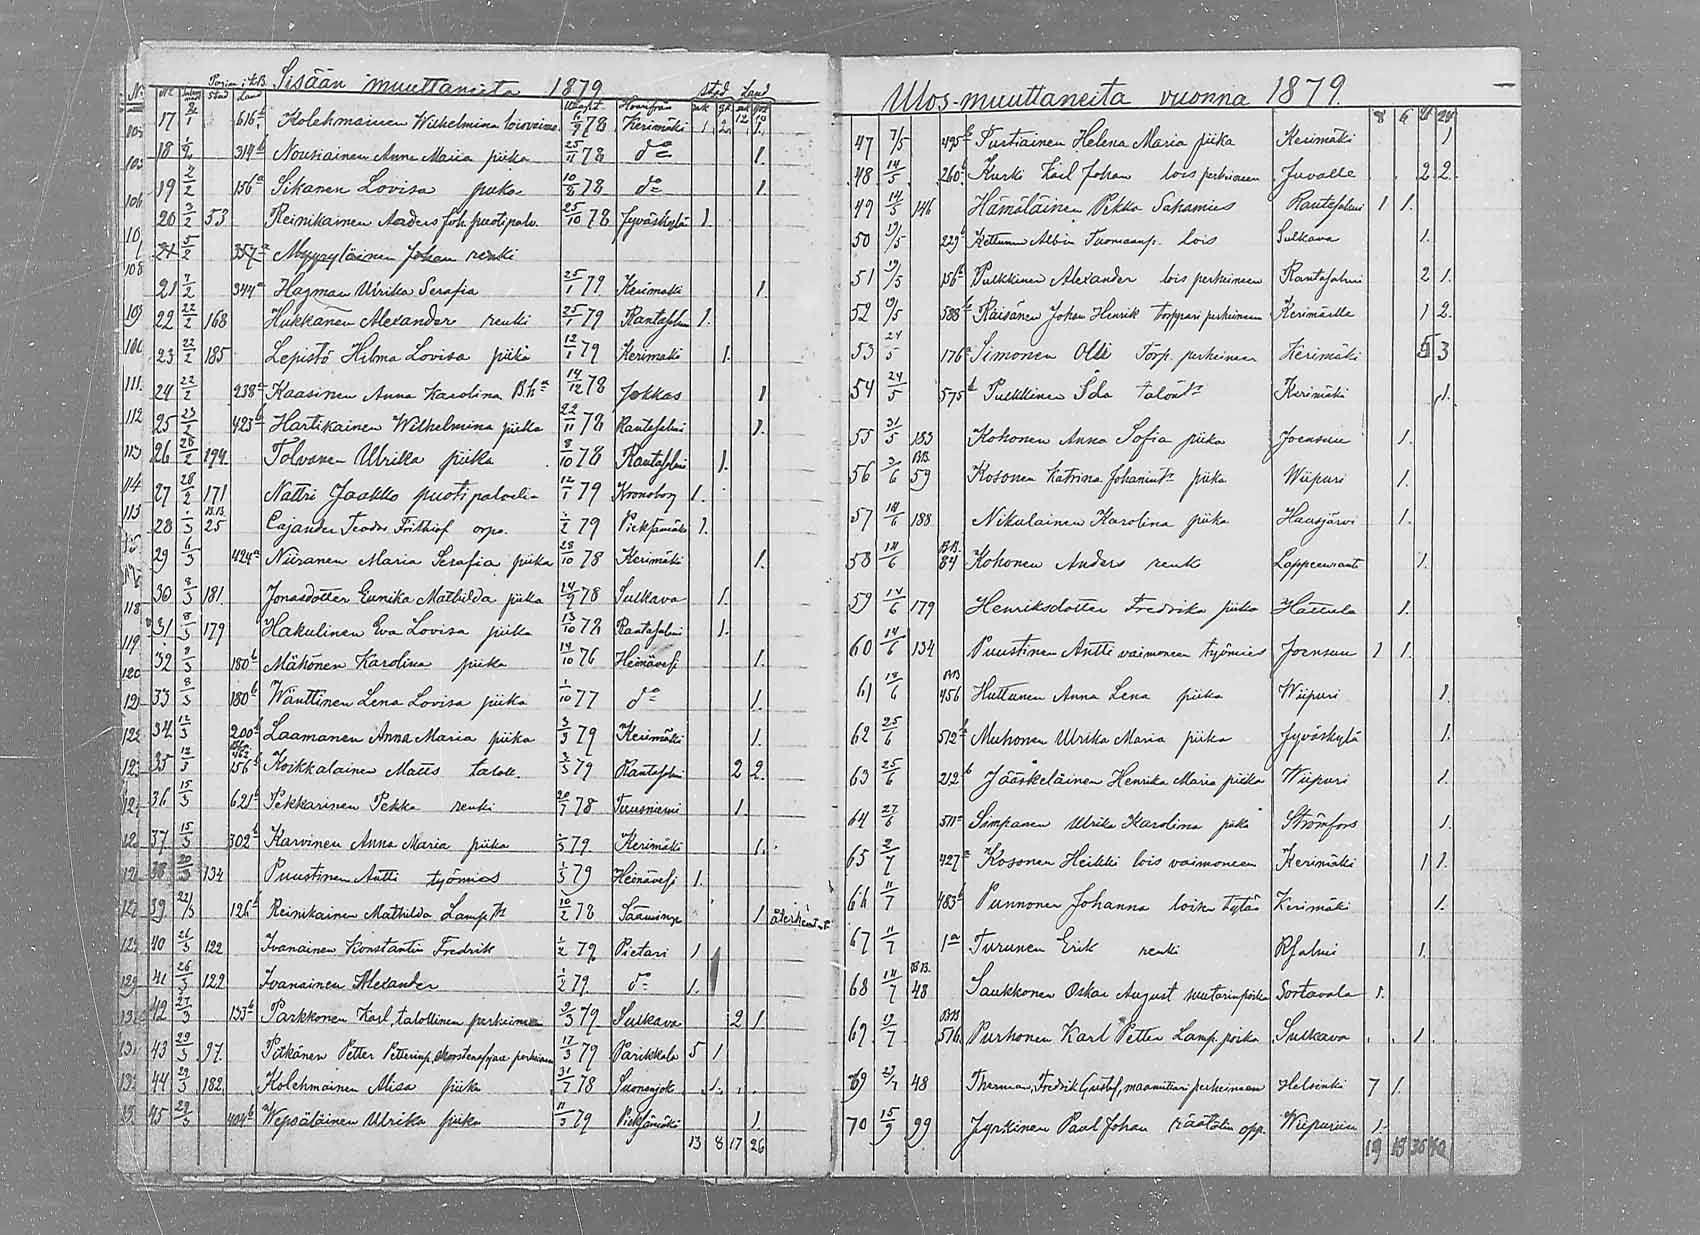 Sisään muuttaneita 1879
Stad Land
17 2/1 616 b Kolehmainen Wilhelmina loisvaimo 6/9 78 Kerimäki 1 2 1.
18 314 b Nousiainen Anna Maria piika 25/11 78 do 1.
19 2/2 156 a Sikanen Lovisa piika 10/8 78 do 1.
20 3/2 53 Reinikainen Anders Joh. puotipalv. 25/10 78 Jyväskylä 1.
21 5/2 357 a Myyryläinen Johan renki
21 7/2 344 a Hagman Ulrika Serafia 25/1 79. Kerimäki 1.
22 22/2 168 Hukkanen Alexander renki 25/1 79 Rantasalmi 1.
23 22/2 185 Lepistö Hilma Lovisa piika 12/1 79 Kerimäki 1.
24 22/2 238 a Kaasinen Anna Karolina 14/12 78 Jokkas 1
25 23/2 423 b Hartikainen Wilhelmina piika 22/11 78 Rantasalmi 1.
26 28/2 194. Tolvanen Ulrika piika 8/10 78 Rantasalmi 1.
27 28/2 171 Nattri Jaakko puotipalvelia 12/1 79 Kronoborg 1.
28 1/3 25 Cajander Teodor Frithiof orpo. 1/2 79 Pieksämäki 1.
29 6/3 424 a Niiranen Maria Serafia piika 28/10 78 Kerimäki 1.
30 8/3 181 Jonasdotter Eunika Mathilda piika 14/9 78 Sulkava 1.
31 8/3 179 Hakulinen Eva Lovisa piika 13/10 78 Rantasalmi 1.
32 8/3 180 b Mähönen Karolina piika 14/10 76 Heinävesi 1.
33 8/3 180 b Wänttinen Lena Lovisa piika 1/10 77 do 1.
34 12/3 200 b Laamanen Anna Maria piika 3/3 79 Kerimäki 1.
35 12/3 256 b Koikkalainen Matts taloll. 3/3 79 Rantasalmi 2 2.
36 15/3 621 b Pekkarinen Pekka renki 20/7 78 Tuusniemi 1.
37 15/3 302 b Karvinen Anna Maria piika 1/3 79. Kerimäki 1.
38 20/3 134 Puustinen Antti työmies 1/3 79 Heinävesi 1.
39 22/3 126 b Reinikainen Mathilda Lamp. tr 10/2 78 Sääminge 1
40 26/3 122 Ivanainen Konstantin Fredrik 1/2 79. Pietari 1
41 26/3 122 Ivanainen Alexander 1/2 79. do 1.
42 27/3 133 b Parkkonen Karl, talollinen perheineen 3/3 79 Sulkava 2 1
43 29/3 97. Pitkänen Petter Petterinp. perheineen 17/3 79 Parikkala 5 1
44 29/3 182. Kolehmainen Alisa piika 31/7 78 Suonenjoki 1.
45 29/3 404 b Wepsäläinen Ulrika piika 11/3 79 Pieksämäki 1.
13 8 17 26
Ulos-muuttaneita vuonna 1879.
8 6
47 7/5 495 b Turtiainen Helena Maria piika Kerimäki 1
48 14/5 260 b Kurki Karl Johan lois perheineen Juvalle 2 2.
49 14/5 146 Hämäläinen Pekka Rantasalmi 1 1.
50 19/5 229 b Kettunen Albin Tuomaanp. lois Sulkava 1.
51 19/5 156 b Pulkkinen Alexander lois perheineen Rantasalmi 2 1.
52 588 b Räisänen Johan Henrik torppari perheineen Kerimäelle 1 2.
53 24/5 176 a Simonen Olli Torp. perheineen Kerimäki 5 3
54 24/5 575 b Pulkkinen Ida Kerimäki 1.
55 31/5 183 Kohonen Anna Sofia piika Joensuu 1.
56 3/6 59 Kosonen Katrina Johanint. piika Wiipuri 1.
57 14/6 188 Nikulainen Karolina piika Hausjärvi 1.
58 14/6 84 Kohonen Anders renki Lappeenranta 1.
59 14/6 179 Henriksdotter Fredrika piika Hattula 1.
60 14/6 134 Puustinen Antti vaimoneen työmies Joensuu 1 1.
61 456 Huttunen Anna Lena piika Wiipuri 1.
62 25/6 572 b Muhonen Ulrika Maria piika Jyväskylä 1.
63 25/6 212 b Jääskeläinen Henrika Maria piika Wiipuri 1.
64 27/6 511 a Simpanen Ulrika Karolina piika Strömfors 1.
65 2/7 427 a Kosonen Heikki lois vaimoneen Kerimäki 1 1.
66 11/7 483 b Punnonen Johanna loisen tytär Kerimäki 1.
67 11/7 1 a Turunen Erik renki Rsalmi 1.
68 14/7 48 Saukkonen Oskar August suutarinpoika Sortavala 1.
69. 19/7 516. Purhonen Karl Petter Lamp. poika Sulkava 1.
69 48 Therman, Fredrik Gustaf, perheineen Helsinki 7 1.
70 15/9 99 Jyrkinen Paul Johan räätälin opp. Wiipuriin 1.